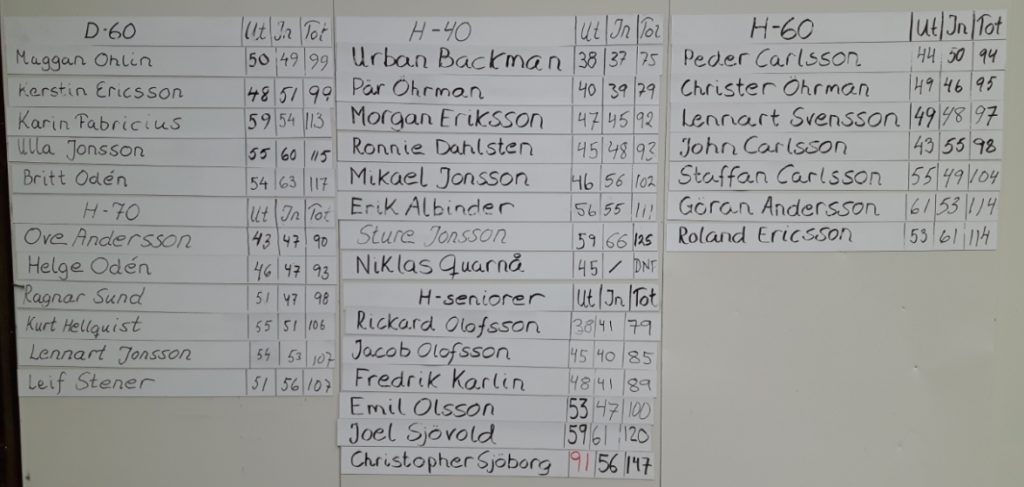 D-60 Ut In Tot
Maggan Ohlin 50 49 99
Kerstin Ericsson 48 51 99
Karin Fabricius 59 54 113
Ulla Jonsson 55 60 115
Britt Odén 54 63 117
H-70 Ut In Tot
Ove Andersson 43 47 90
Helge Odén 46 47 93
Ragnar Sund 51 47 98
Kurt Hellquist 55 51 106
Lennart Jonsson 54 53 107
Leif Stener 51 56 107
H-40 Ut In Tot
Urban Backman 38 37 75
Pär Öhrman 40 39 79
Morgan Eriksson 47 45 92
Ronnie Dahlsten 45 48 93
Mikael Jonsson 46 56 102
Erik Albinder 56 55 111
Sture Jonsson 59 66 125
Niklas Quarnå 45 / DNF
H-seniorer Ut In Tot
Rickard Olofsson 38 41 79
Jacob Olofsson 45 40 85
Fredrik Karlin 48 41 89
Emil Olsson 53 47 100
Joel Sjövold 59 61 120
Christopher Sjöborg 91 56 147
H-60 Ut In Tot
Peder Carlsson 44 50 94
Christer Öhrman 49 46 95
Lennart Svensson 49 48 97
John Carlsson 43 55 98
Staffan Carlsson 55 49 104
Göran Andersson 61 53 114
Roland Ericsson 53 61 114